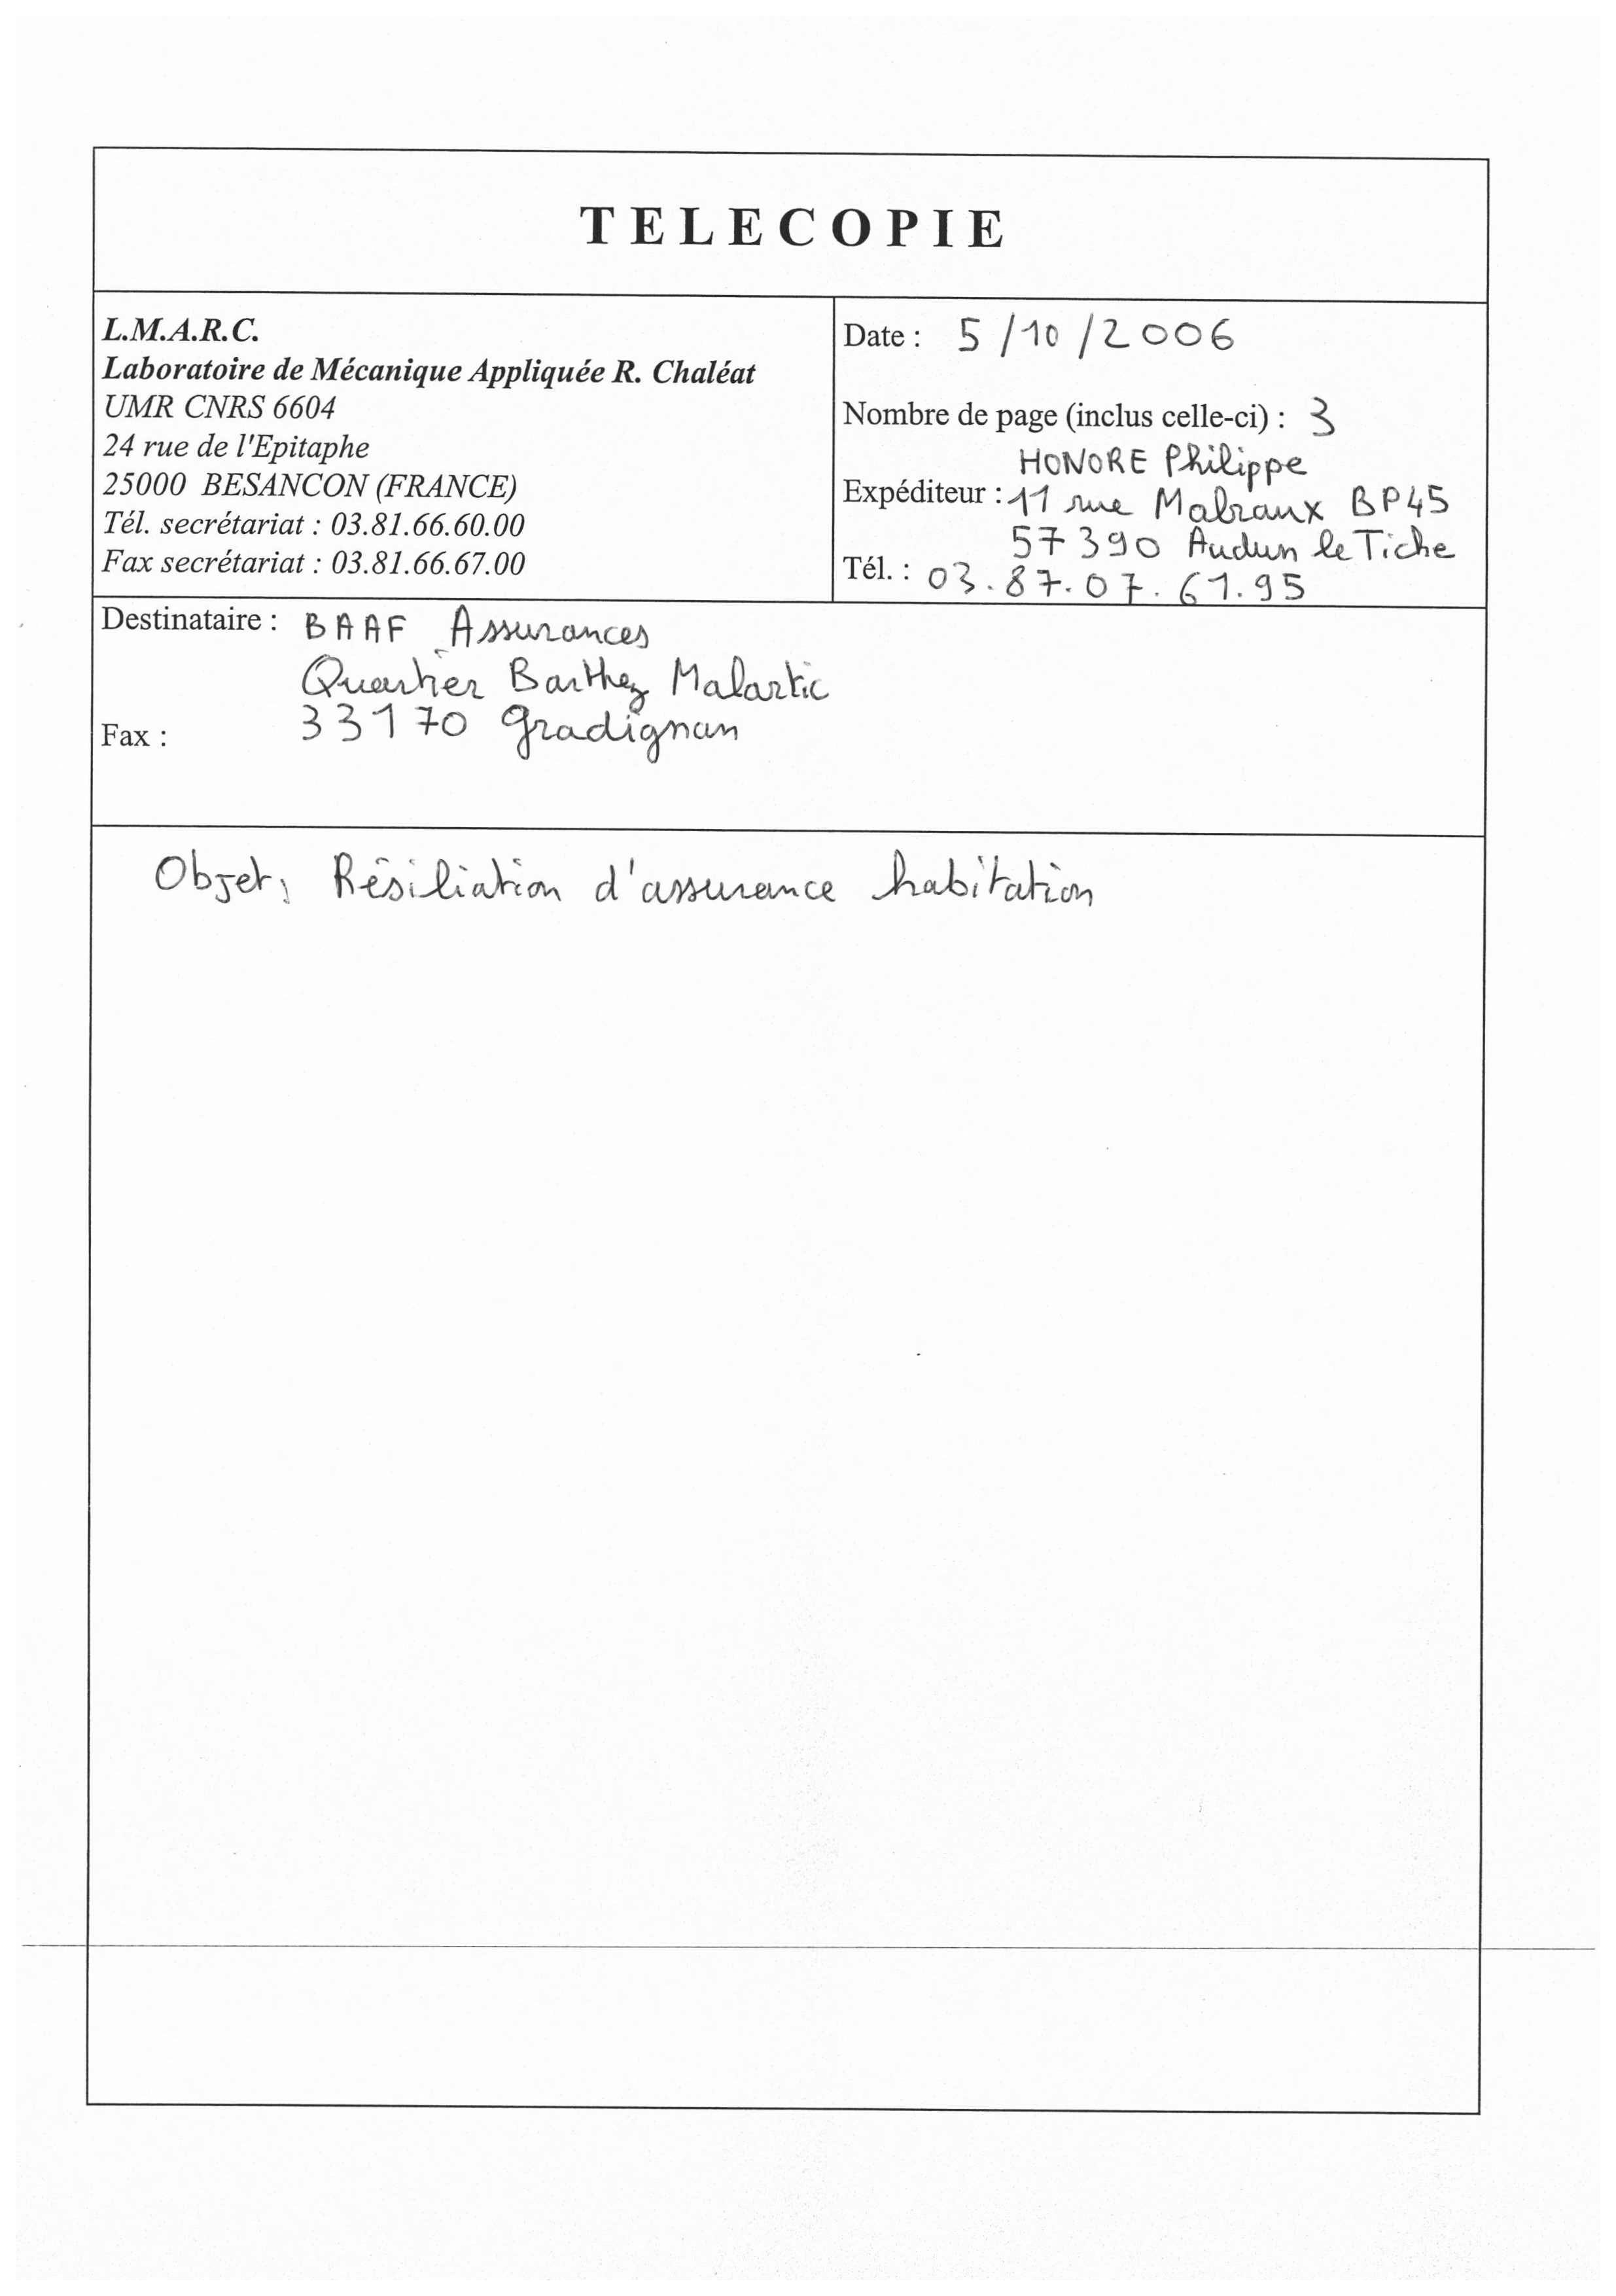 TELECOPIE
L.M.A.R.C.
Laboratoire de Mécanique Appliquée R. Chaléat
UMR CNRS 6604
24 rue de l'Epitaphe
25000 BESANCON (FRANCE)
Tél. secrétariat : 03.81.66.60.00
Fax secrétariat : 03.81.66.67.00
Date : 5/10/2006
Nombre de page (inclus celle-ci) : 3
HONORE Philippe
Expéditeur : 11 rue Malraux BP45
57390 Audun le Tiche
Tél. : 03.87.07.61.95
Destinataire : BAAF Assurances
Quartier Barthez Malartic
33170 Gradignan
Fax :
Objet, Résiliation d'assurance habitation